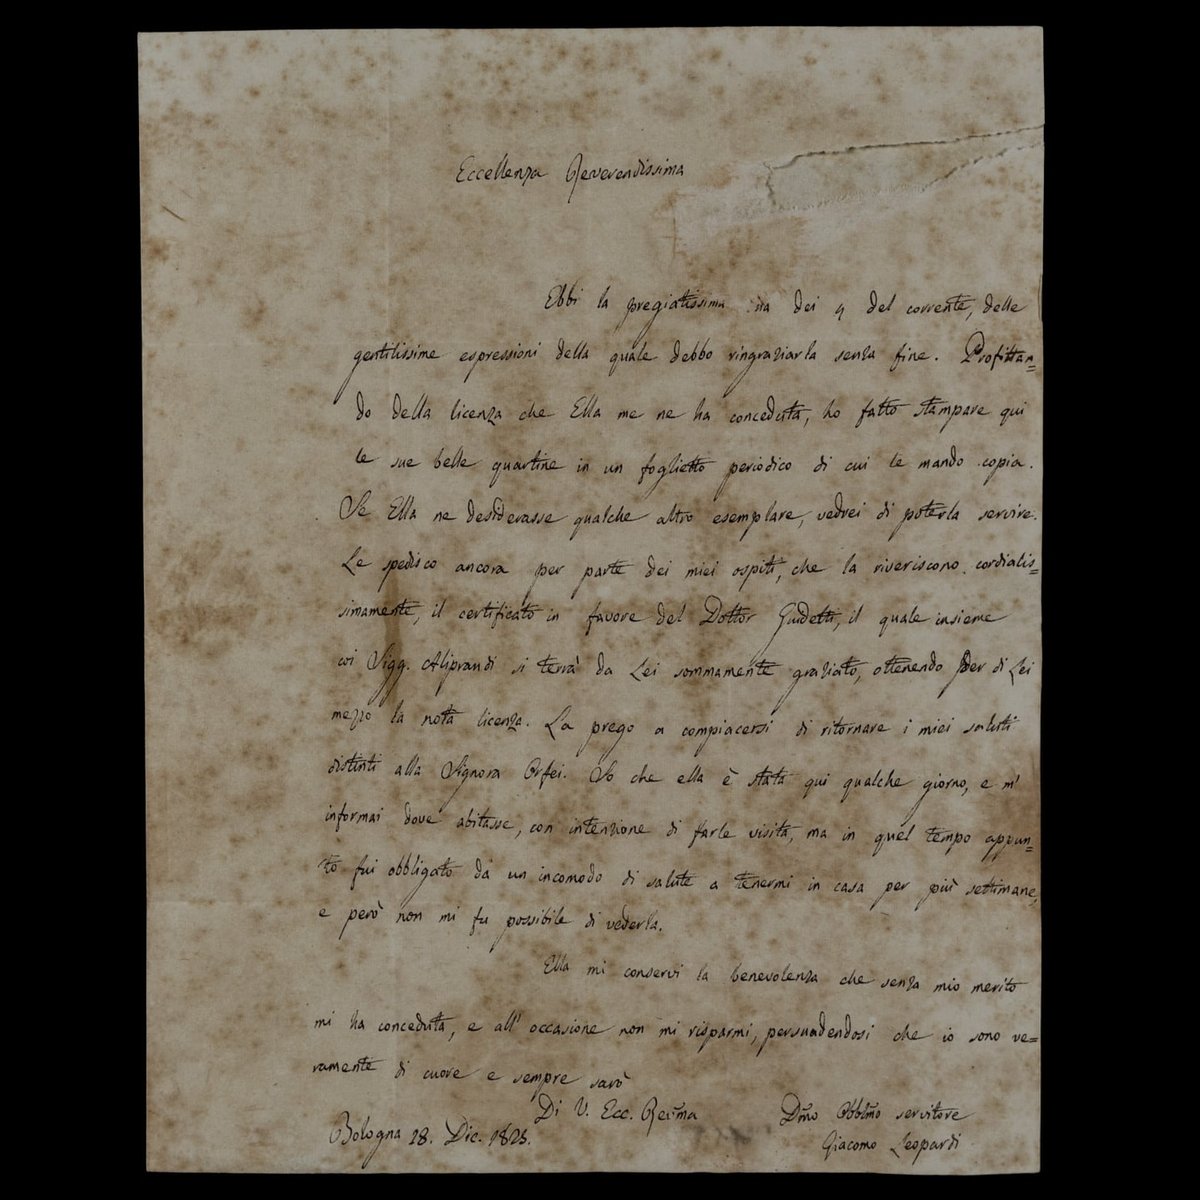 Eccellenza Reverendissima
Ebbi la pregiatissima dei 9 del corrente, delle
gentilissime espressioni della quale debbo ringraziarla senza fine. Profittan=
do della licenza che Ella me ne ha conceduta, ho fatto stampare qui
le sue belle quartine in un foglietto periodico di cui le mando copia.
Se Ella ne desiderasse qualche altro esemplare, vedrei di poterla servire.
Le spedisco ancora per parte dei miei ospiti, che la riveriscono cordialis=
simamente, il certificato in favore del Dottor Guidetti, il quale insieme
coi Sigg. Aliprandi si terrà da Lei sommamente graziato, ottenendo per di Lei
mezzo la nota licenza. La prego a compiacersi di ritornare i miei saluti
distinti alla Signora Orfei. So che ella è stata qui qualche giorno, e m'
informai dove abitasse, con intenzione di farle visita, ma in quel tempo appun=
to fui obbligato da un incomodo di salute a tenermi in casa per più settimane,
e però non mi fu possibile di vederla.
Ella mi conservi la benevolenza che senza mio merito
mi ha conceduta, e all' occasione non mi risparmi, persuadendosi che io sono ve=
ramente di cuore e sempre sarò
Di V. Ecc. Rev̄ma
Dm̄o Obblm̄o servitore
Bologna 28. Dic. 1825.
Giacomo Leopardi